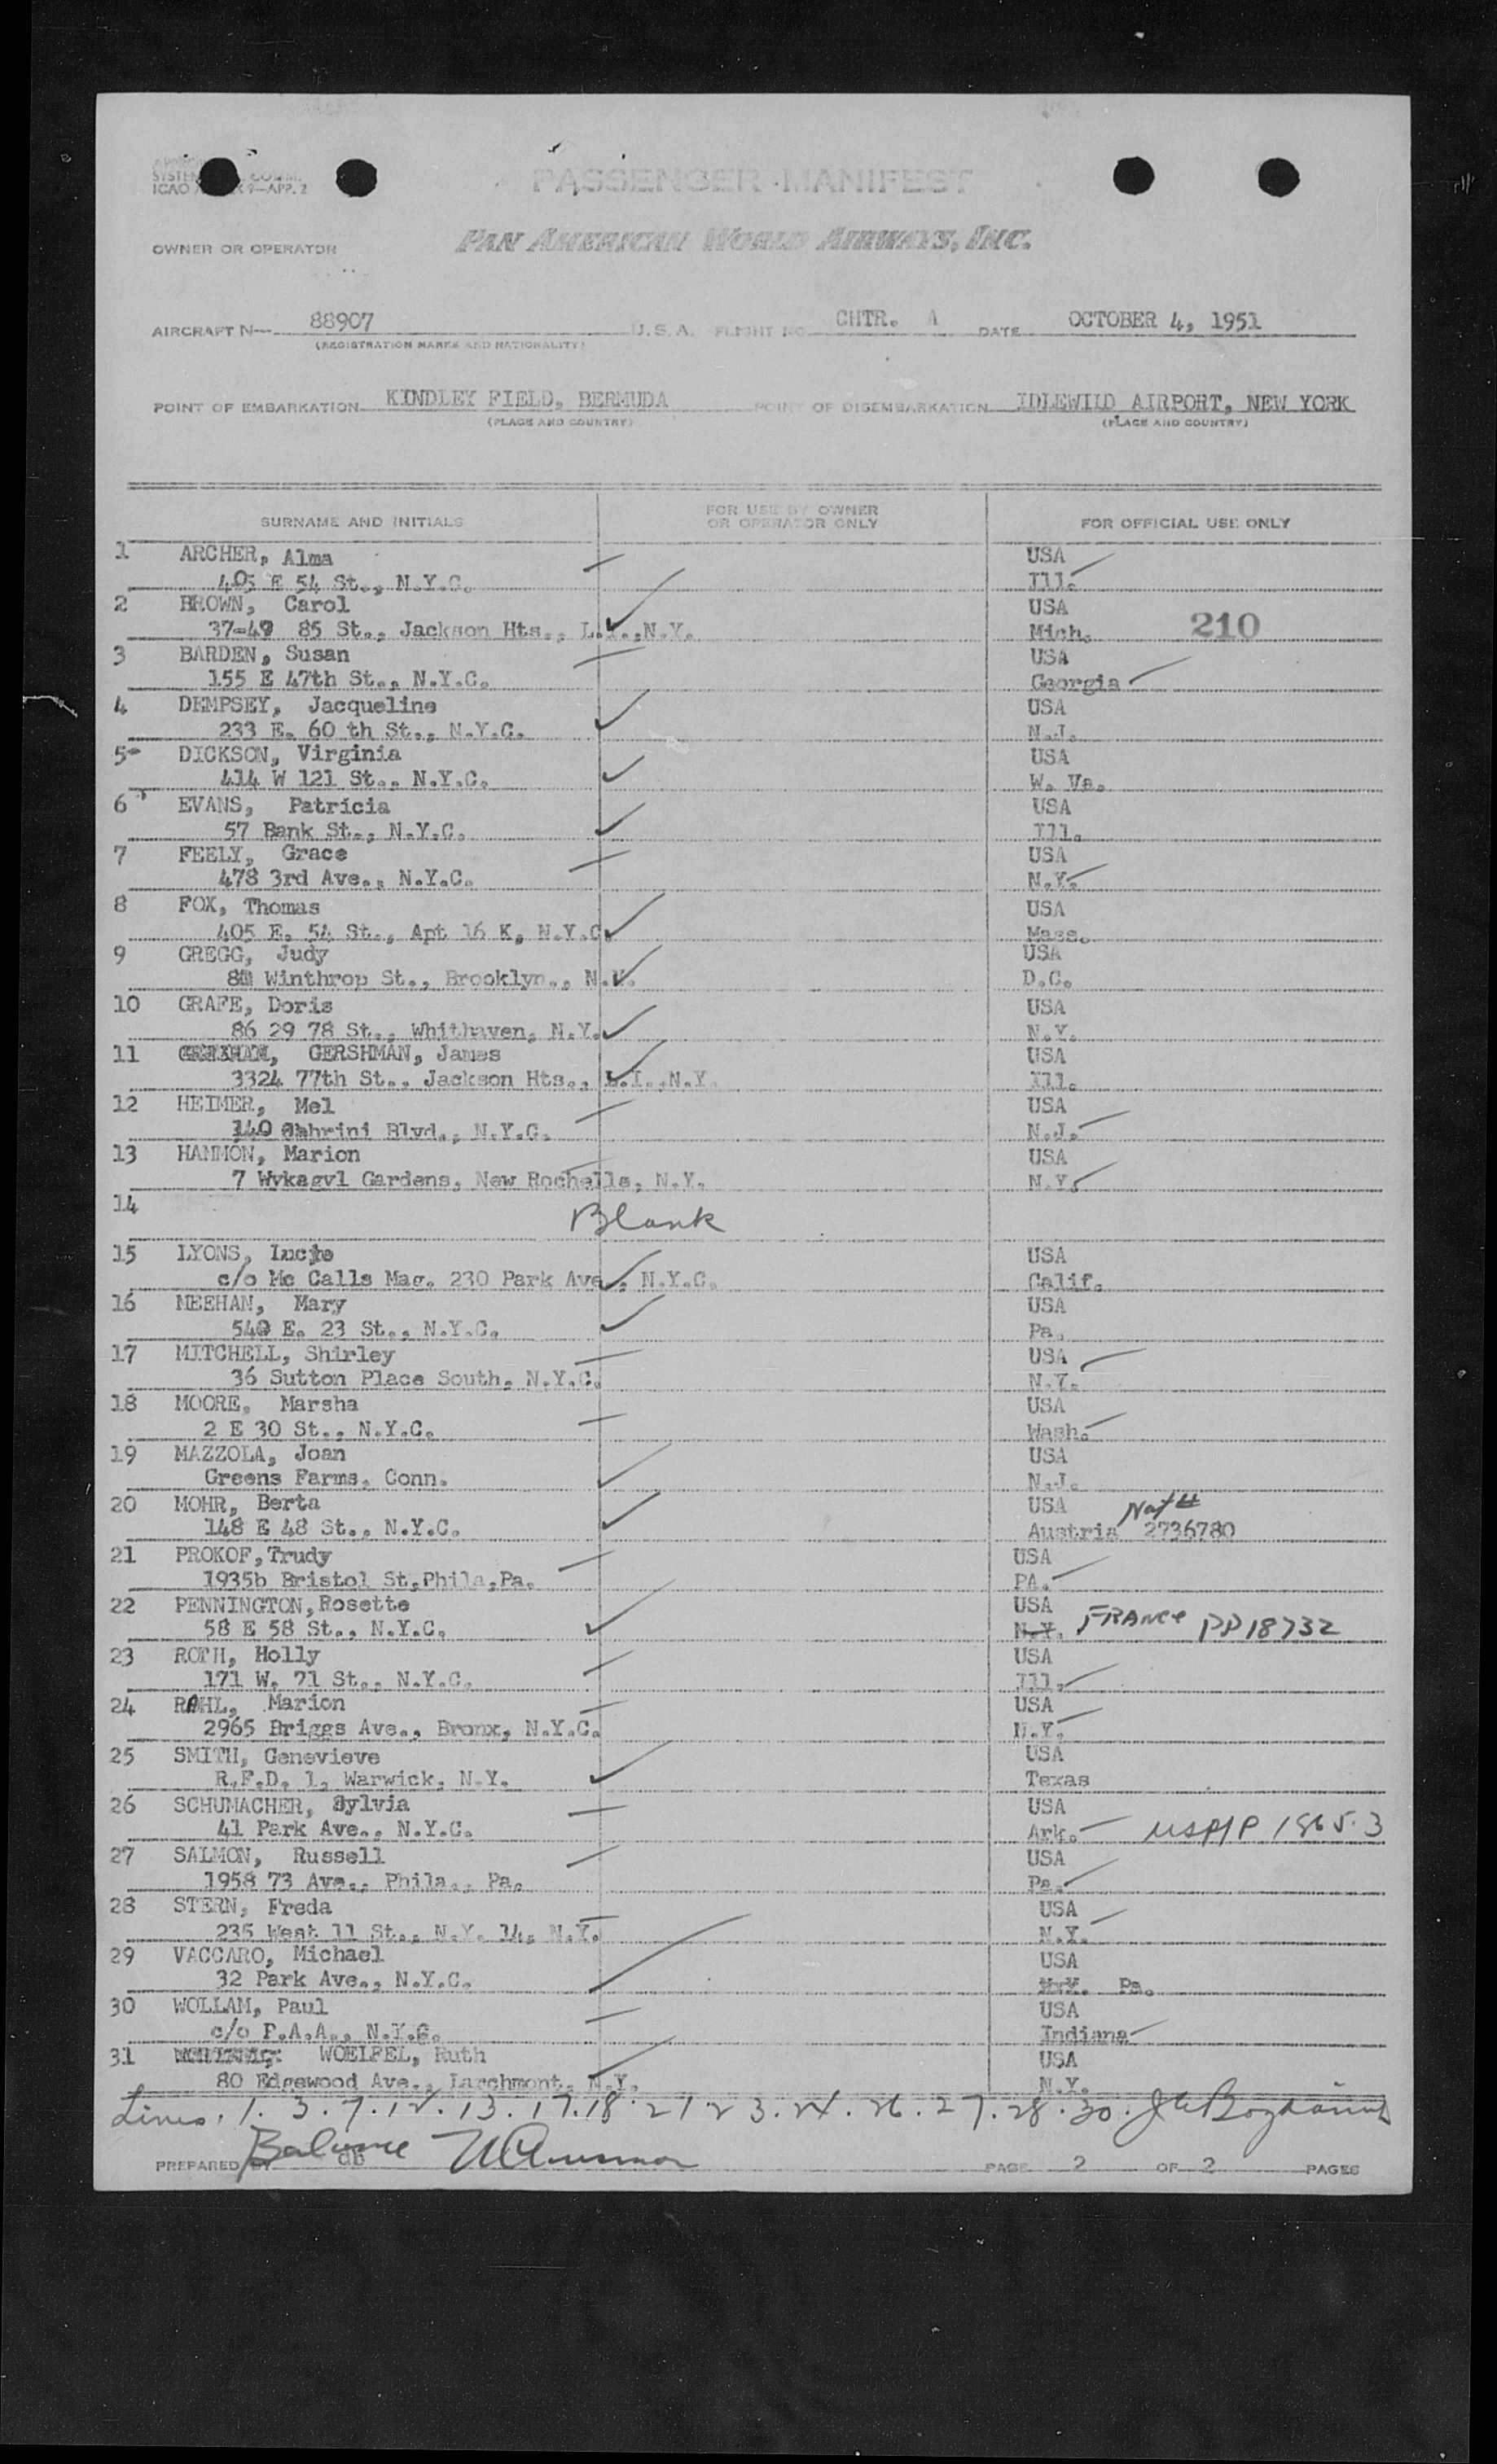 SYSTEM COMM.
ICAO 9—APP. 2
PASSENGER MANIFEST
OWNER OR OPERATOR PAN AMERICAN WORLD AIRWAYS, INC.
AIRCRAFT N— 88907 U.S.A. FLIGHT NO. CHTR. A DATE OCTOBER 4, 1951
(REGISTRATION MARKS AND NATIONALITY)
POINT OF EMBARKATION KINDLEY FIELD, BERMUDA POINT OF DISEMBARKATION IDLEWILD AIRPORT, NEW YORK
(PLACE AND COUNTRY) (PLACE AND COUNTRY)
SURNAME AND INITIALS FOR USE BY OWNER OR OPERATOR ONLY FOR OFFICIAL USE ONLY
1 ARCHER, Alma USA
405 E 54 St., N.Y.C. Ill.
2 BROWN, Carol USA
37-49 85 St., Jackson Hts., L.I., N.Y. Mich. 210
3 BARDEN, Susan USA
155 E 47th St., N.Y.C. Georgia
4 DEMPSEY, Jacqueline USA
233 E. 60 th St., N.Y.C. N.J.
5 DICKSON, Virginia USA
414 W 121 St., N.Y.C. W. Va.
6 EVANS, Patricia USA
57 Bank St., N.Y.C. Ill.
7 FEELY, Grace USA
478 3rd Ave., N.Y.C. N.Y.
8 FOX, Thomas USA
405 E. 54 St., Apt 16 K, N.Y.C. Mass.
9 GREGG, Judy USA
Winthrop St., Brooklyn., N.Y. D.C.
10 GRAFE, Doris USA
86 29 78 St., Whithaven, N.Y. N.Y.
11 GERSHMAN, James USA
3324 77th St., Jackson Hts., L.I.,N.Y. Ill.
12 HEIMER, Mel USA
140 Cabrini Blvd., N.Y.C. N.J.
13 HAMMON, Marion USA
7 Wykagyl Gardens, New Rochelle, N.Y. N.Y.
14 Blank
15 LYONS, Lucie USA
c/o Mc Calls Mag. 230 Park Ave., N.Y.C. Calif.
16 MEEHAN, Mary USA
540 E. 23 St., N.Y.C. Pa.
17 MITCHELL, Shirley USA
36 Sutton Place South, N.Y.C. N.Y.
18 MOORE, Marsha USA
2 E 30 St., N.Y.C. Wash.
19 MAZZOLA, Joan USA
Greens Farms, Conn. N.J.
20 MOHR, Berta USA Nat #
148 E 48 St., N.Y.C. Austria 2736780
21 PROKOF, Trudy USA
1935b Bristol St,Phila,Pa. PA.
22 PENNINGTON, Rosette USA
58 E 58 St., N.Y.C. N.Y. FRANCE PP18732
23 ROTH, Holly USA
171 W. 71 St., N.Y.C. Ill.
24 RAHL, Marion USA
2965 Briggs Ave., Bronx, N.Y.C. N.Y.
25 SMITH, Genevieve USA
R.F.D. 1, Warwick, N.Y. Texas
26 SCHUMACHER, Sylvia USA
41 Park Ave., N.Y.C. Ark.
27 SALMON, Russell USA
1958 73 Ave., Phila., Pa. Pa.
28 STERN, Freda USA
235 West 11 St., N.Y. 14, N.Y. N.Y.
29 VACCARO, Michael USA
32 Park Ave., N.Y.C. N.Y. Pa.
30 WOLLAM, Paul USA
c/o P.A.A., N.Y.C. Indiana
31 WOELFEL, Ruth USA
80 Edgewood Ave., Larchmont, N.Y. N.Y.
Lines. 1. 3. 7. 12. 13. 17. 18. 21. 23. 24. 26. 27. 28. 30.
PREPARED BY db Balance PAGE 2 OF 2 PAGES